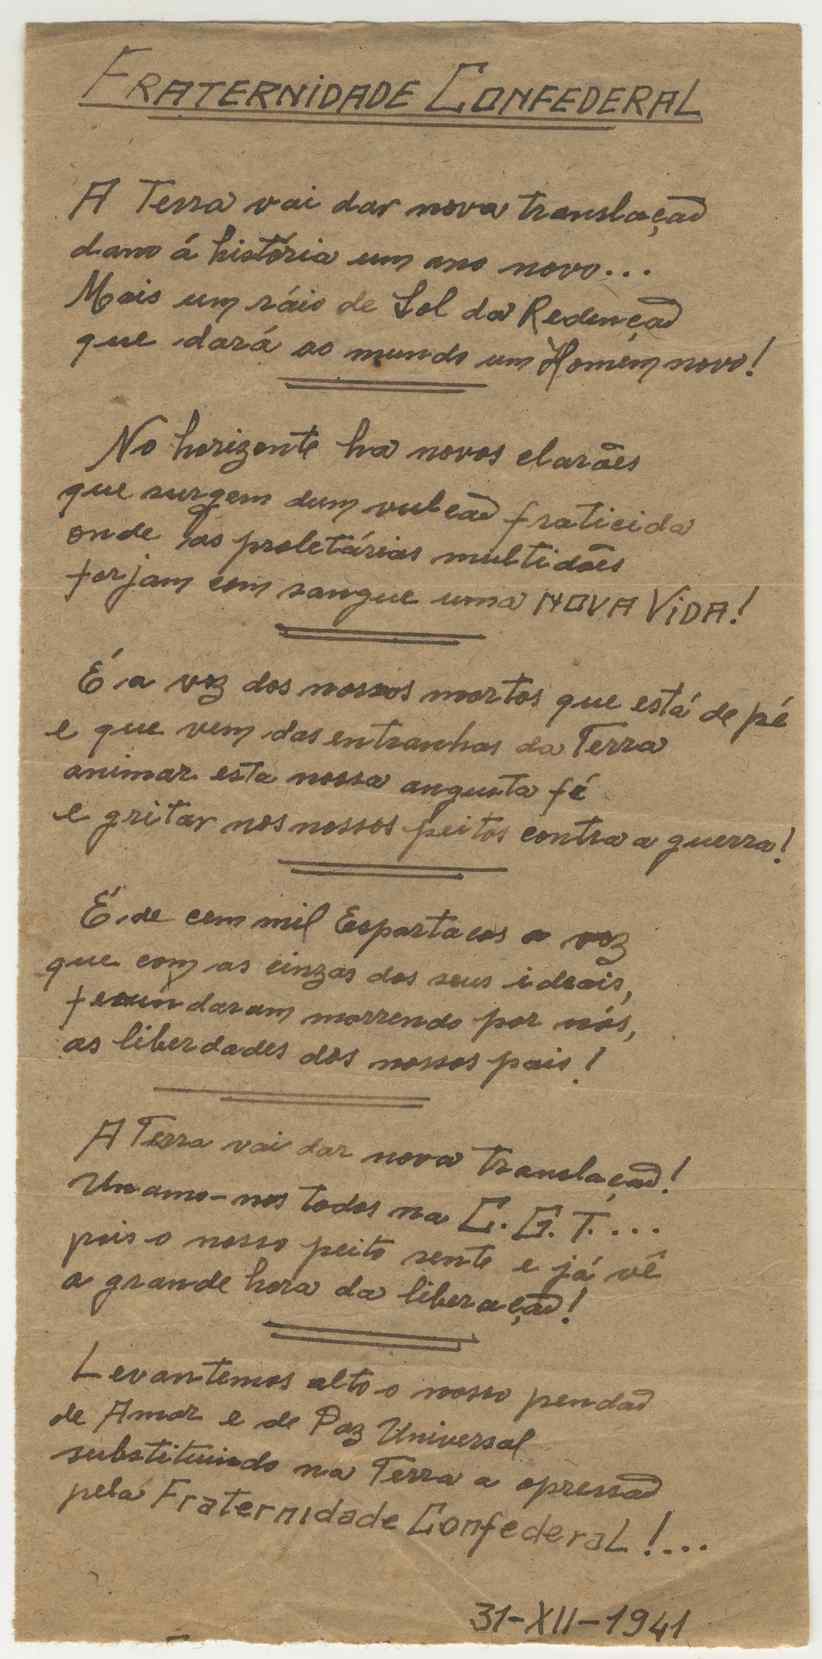 FRATERNIDADE CONFEDERAL
A Terra vai dar nova translação
dano á história um ano novo...
Mais um ráio de Sol da Redenção
que dará ao mundo um Homem novo!
No horizonte ha novos clarões
que surgem dum vulcão fraticida
onde as proletárias multidões
forjam com sangue uma NOVA VIDA!
É a voz dos nossos mortos que está de pé
e que vem das entranhas da Terra
animar esta nossa angusta fé
e gritar nos nossos peitos contra a guerra!
É de cem mil Espartacos a voz
que com as cinzas dos seus ideais,
fecundaram morrendo por nós,
as liberdades dos nossos pais!
A Terra vai dar nova translação!
Unamo-nos todos na C. G. T....
pois o nosso peito sente e já vê
a grande hora da liberação!
Levantemos alto o nosso pendão
de Amor e de Paz Universal
substituindo na Terra a opressão
pela Fraternidade Confederal!...
31-XII-1941